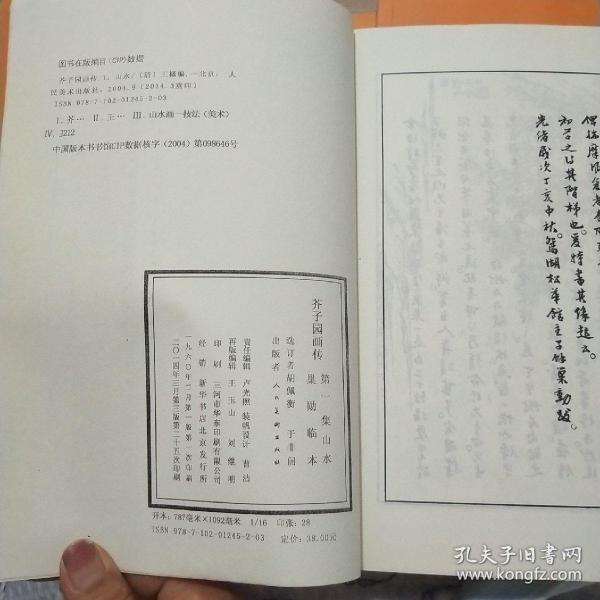 图书在版编目(CIP)数据
芥子园画传.1,山水/(清)王概编.—北京:人
民美术出版社,2004.9(2014.3重印)
ISBN 978-7-102-01245-2-03
Ⅰ.芥… Ⅱ.王… Ⅲ.山水画—技法(美术)
Ⅳ.J212
中国版本书书馆CIP数据核字(2004)第098646号
芥子园画传 第一集山水
巢勋临本
选订者 胡佩衡 于 闇
出版者 人民美术出版社
责任编辑 卢光照 装帧设计 曹洁
再版编辑 王玉山 刘继明
印刷 三河市华东印刷有限公司
经销 新华书店北京发行所
一九六〇年二月第一版第一次印刷
二〇一四年三月第三版第二十五次印刷
开本:787毫米×1092毫米 1/16 印张:28
ISBN 978-7-102-01245-2-03 定价:38.00元
初学之占其阶梯也。爰特书其缘起云。
光绪岁次丁亥中秋。鸳湖松华馆主子馀巢勋跋。
孔夫子旧书网
www.kongfz.com